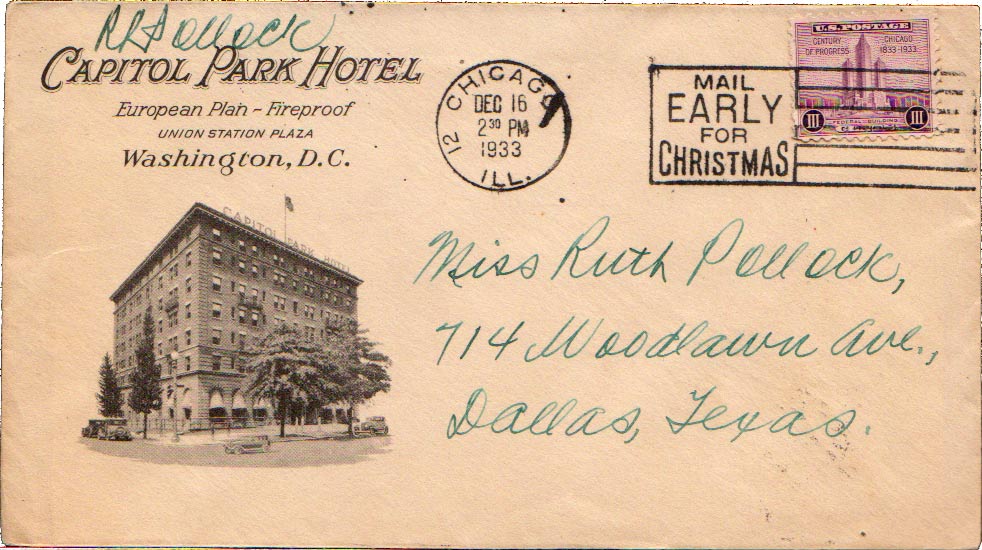 R R Pollock
CAPITOL PARK HOTEL
European Plan - Fireproof
UNION STATION PLAZA
Washington, D.C.
CAPITOL PARK HOTEL
CHICAGO
12
DEC 16
2 30 PM
1933
ILL.
MAIL
EARLY
FOR
CHRISTMAS
U.S. POSTAGE
CENTURY OF PROGRESS
CHICAGO 1833-1933
III
FEDERAL BUILDING
III
Miss Ruth Pollock,
714 Woodlawn Ave.,
Dallas, Texas.